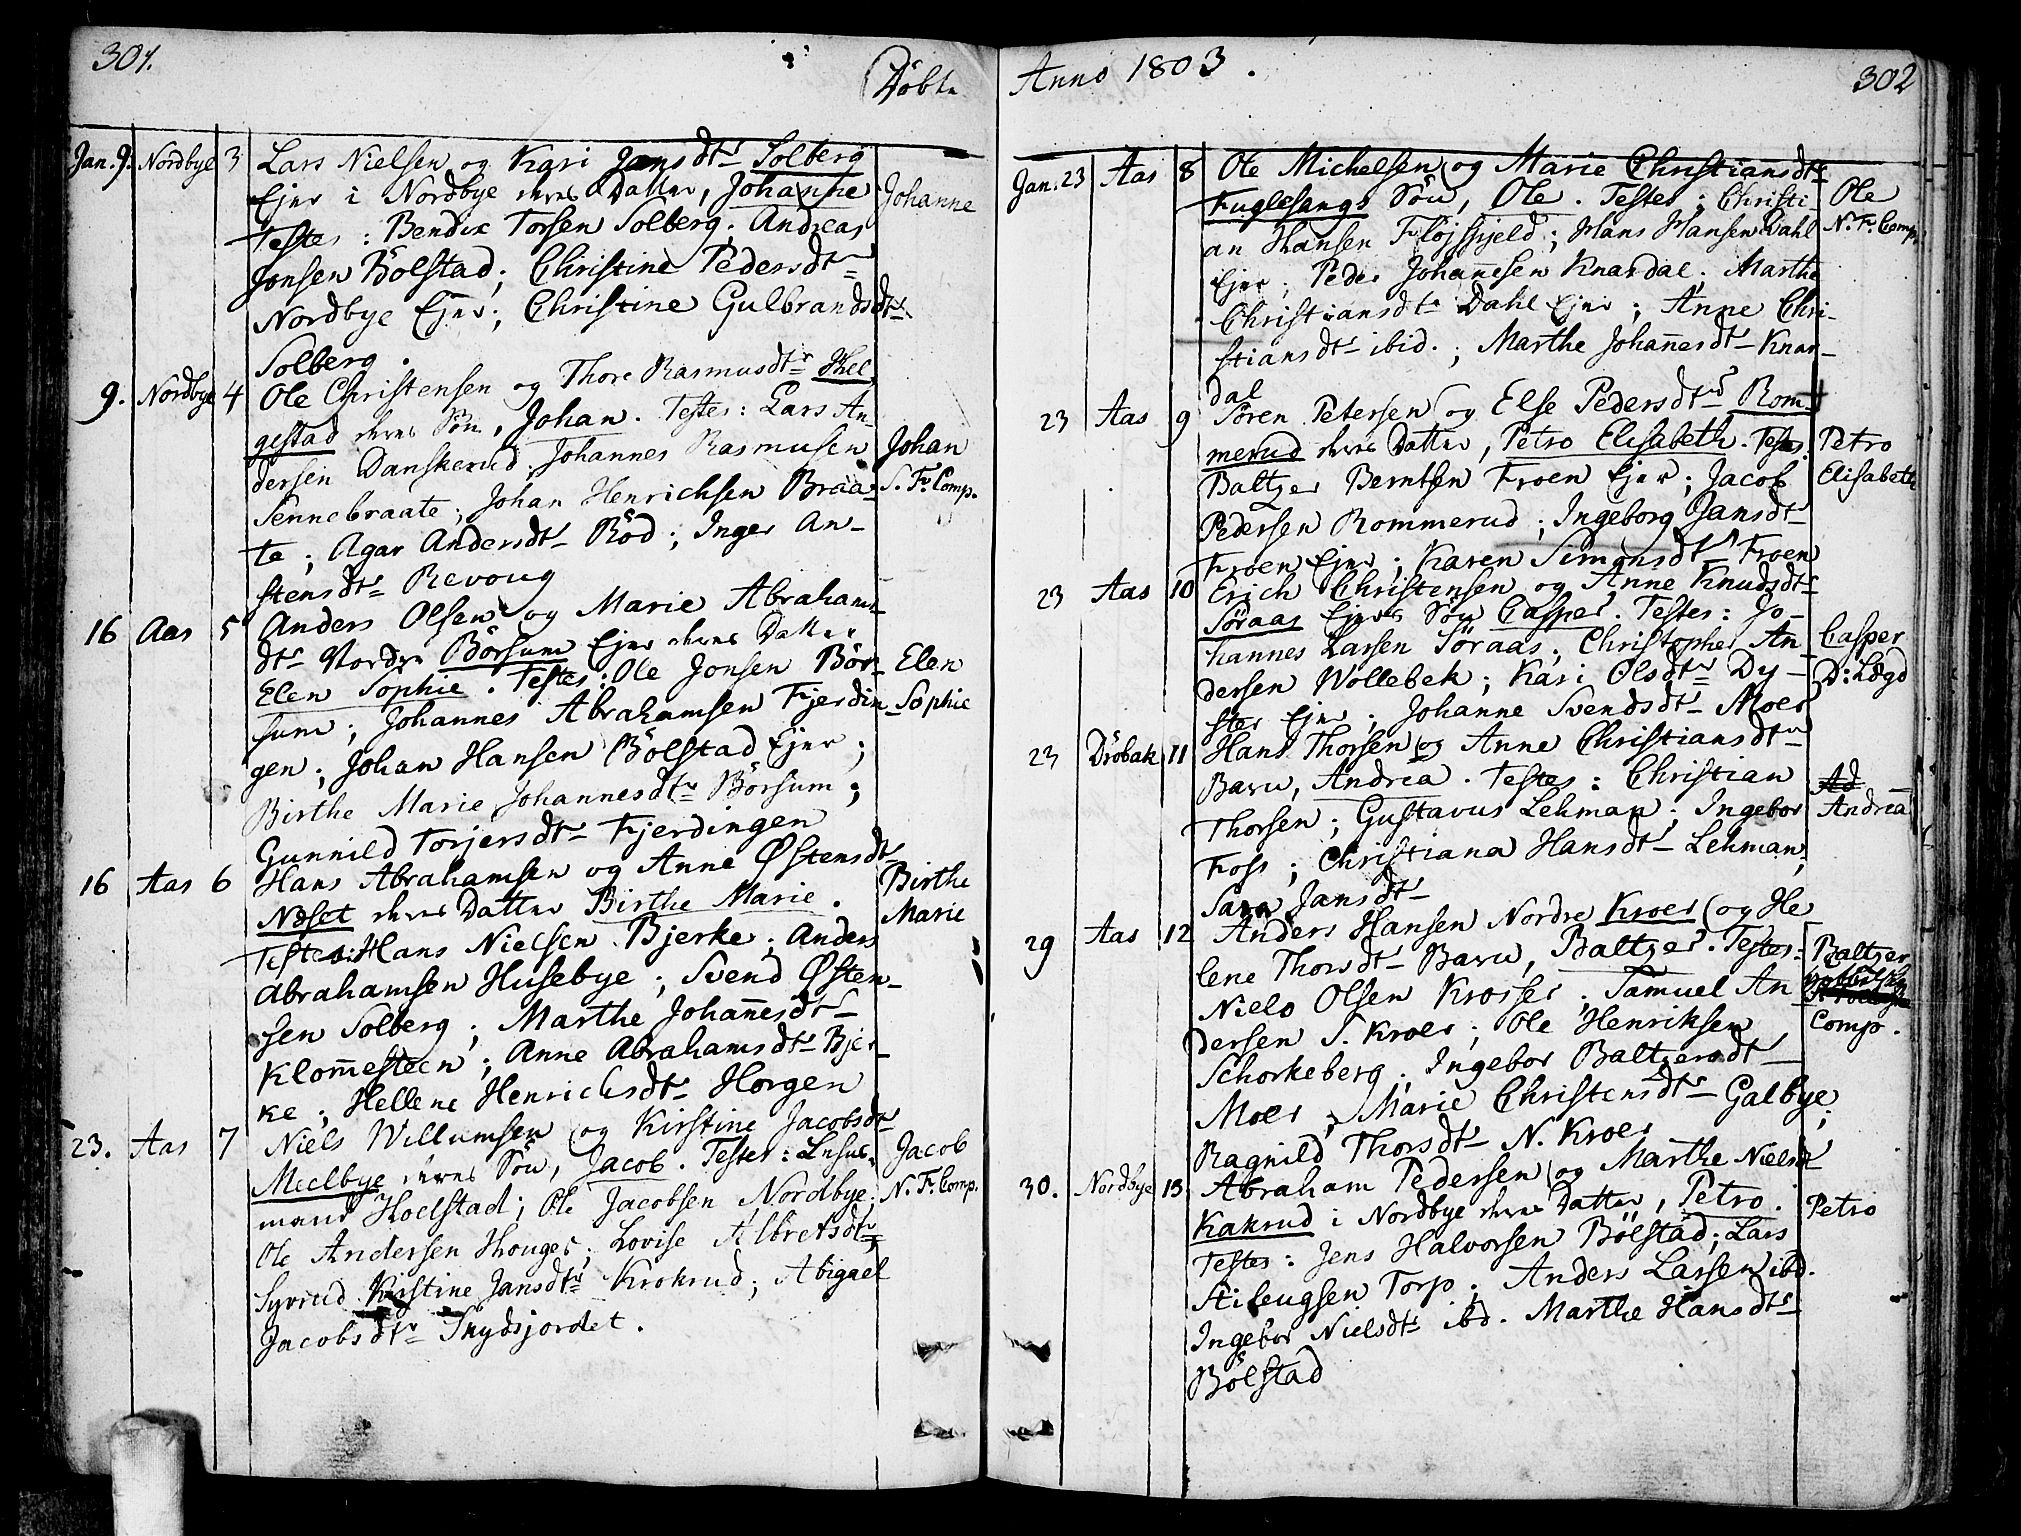 301.
Döbte
Jan. 9. Nordbye 3 Lars Nielsen og Kari Jansdtr Solberg
Ejer i Nordbye deres Datter, Johanne
Johanne
Testes: Bendix Torsen Solberg; Andreas
Jonsen Bölstad; Christine Pedersdtr
Nordbye Ejer; Christine Gulbrandsdtr
Solberg.
9. Nordbye 4 Ole Christensen og Thore Rasmusdtr Hel
gestad deres Sön, Johan. Testes: Lars An
Johan
dersen Danskerud; Johannes Rasmusen
S. Fr. Comp.
Sennebraate; Johan Henrichsen Braa-
te; Agar Andersdtr Röd; Inger An-
stensdtr Revoug
16 Aas 5 Anders Olsen og Marie Abrahams
dtr Nordre Börsum Ejer deres Datter
Elen Sophie. Testes: Ole Jonsen Bör-
Elen
Sophie
sum; Johannes Abrahamsen Fjerdin
gen; Johan Hansen Bölstad Ejer;
Birthe Marie Johannesdtr Börsum;
Gunnild Torjersdtr Fjerdingen
16 Aas 6 Hans Abrahamsen og Anne Østensdtr
Birthe
Næset deres Datter Birthe Marie.
Marie
Testes: Hans Nielsen Bjerke; Anders
Abrahamsen Husebye; Svend Østen-
sen Solberg; Marthe Johan̄esdtr
Klom̄esteen; Anne Abrahamsdtr Bjer
ke; Hellene Henrichsdtr Horgen
23. Aas 7 Niels Willumsen og Kirstine Jacobsdtr
Meelbye deres Sön, Jacob. Testes:
Jacob
mand Hoelstad; Ole Jacobsen Nordbye;
N. Fr. Comp.
Ole Andersen Houger; Lovise Albretsdtr
Syvrud Kirstine Jansdtr Krokrud; Abigael
Jacobsdtr Snydsjordet.
Anno 1803.
302
Jan. 23 Aas 8 Ole Michelsen og Marie Christiansdtr
Fuglesangs Sön, Ole. Testes; Christi-
Ole
an Hansen Flöjspjeld; Hans Hansen Dahl
N. Fr. Comp.
Ejer; Peder Johan̄esen Knardal. Marthe
Christiansdtr Dahl Ejer; Anne Chri-
stiansdtr ibid.; Marthe Johan̄esdtr Knar-
dal
23 Aas 9 Sören Petersen og Else Pedersdtr Rom-
merud deres Datter, Petro Elisabeth. Testes.
Petro
Elisabeth
Baltzer Berntsen Froen Ejer; Jacob
Pedersen Rommerud; Ingeborg Jansdtr
Froen Ejer; Karen Simonsdtr Froen
23 Aas 10 Erich Christensen og Anne Knudsdtr
Söraas Ejeres Sön Casper. Testes: Jo-
Casper
hannes Larsen Söraas; Christopher An-
D: Lægd
dersen Wollebek; Kari Olsdtr Dy-
ster Ejer; Johanne Svendsdtr Moer
23 Dröbak 11 Hans Thorsen og Anne Christiansdtr
Barn, Andrea. Testes: Christian
Ad
Andrea
Thorsen; Gustavus Lehman; Ingebor
Foss; Christiana Hansdtr Lehman;
Sara Jansdtr
29 Aas 12 Anders Hansen Nordre Kroer og He
lene Thorsdtr Barn, Baltzer. Testes:
Baltzer
Niels Olsen Krosser; Samuel An
dersen S. Kroer; Ole Henriksen
Comp.
Schorkeberg; Ingebor Baltzersdtr
Moer; Marie Christensdtr Galbye;
Ragnild Thorsdtr N. Kroer
30. Nordbye 13 Abraham Pedersen og Marthe Nielsdtr
Kakrud i Nordbye deres Datter, Petro.
Petro
Testes: Jens Halvorsen Bölstad; Lars
Stileugsen Torp; Anders Larsen ibd.
Ingebor Nielsdtr ibd. Marthe Hansdtr
Bölstad